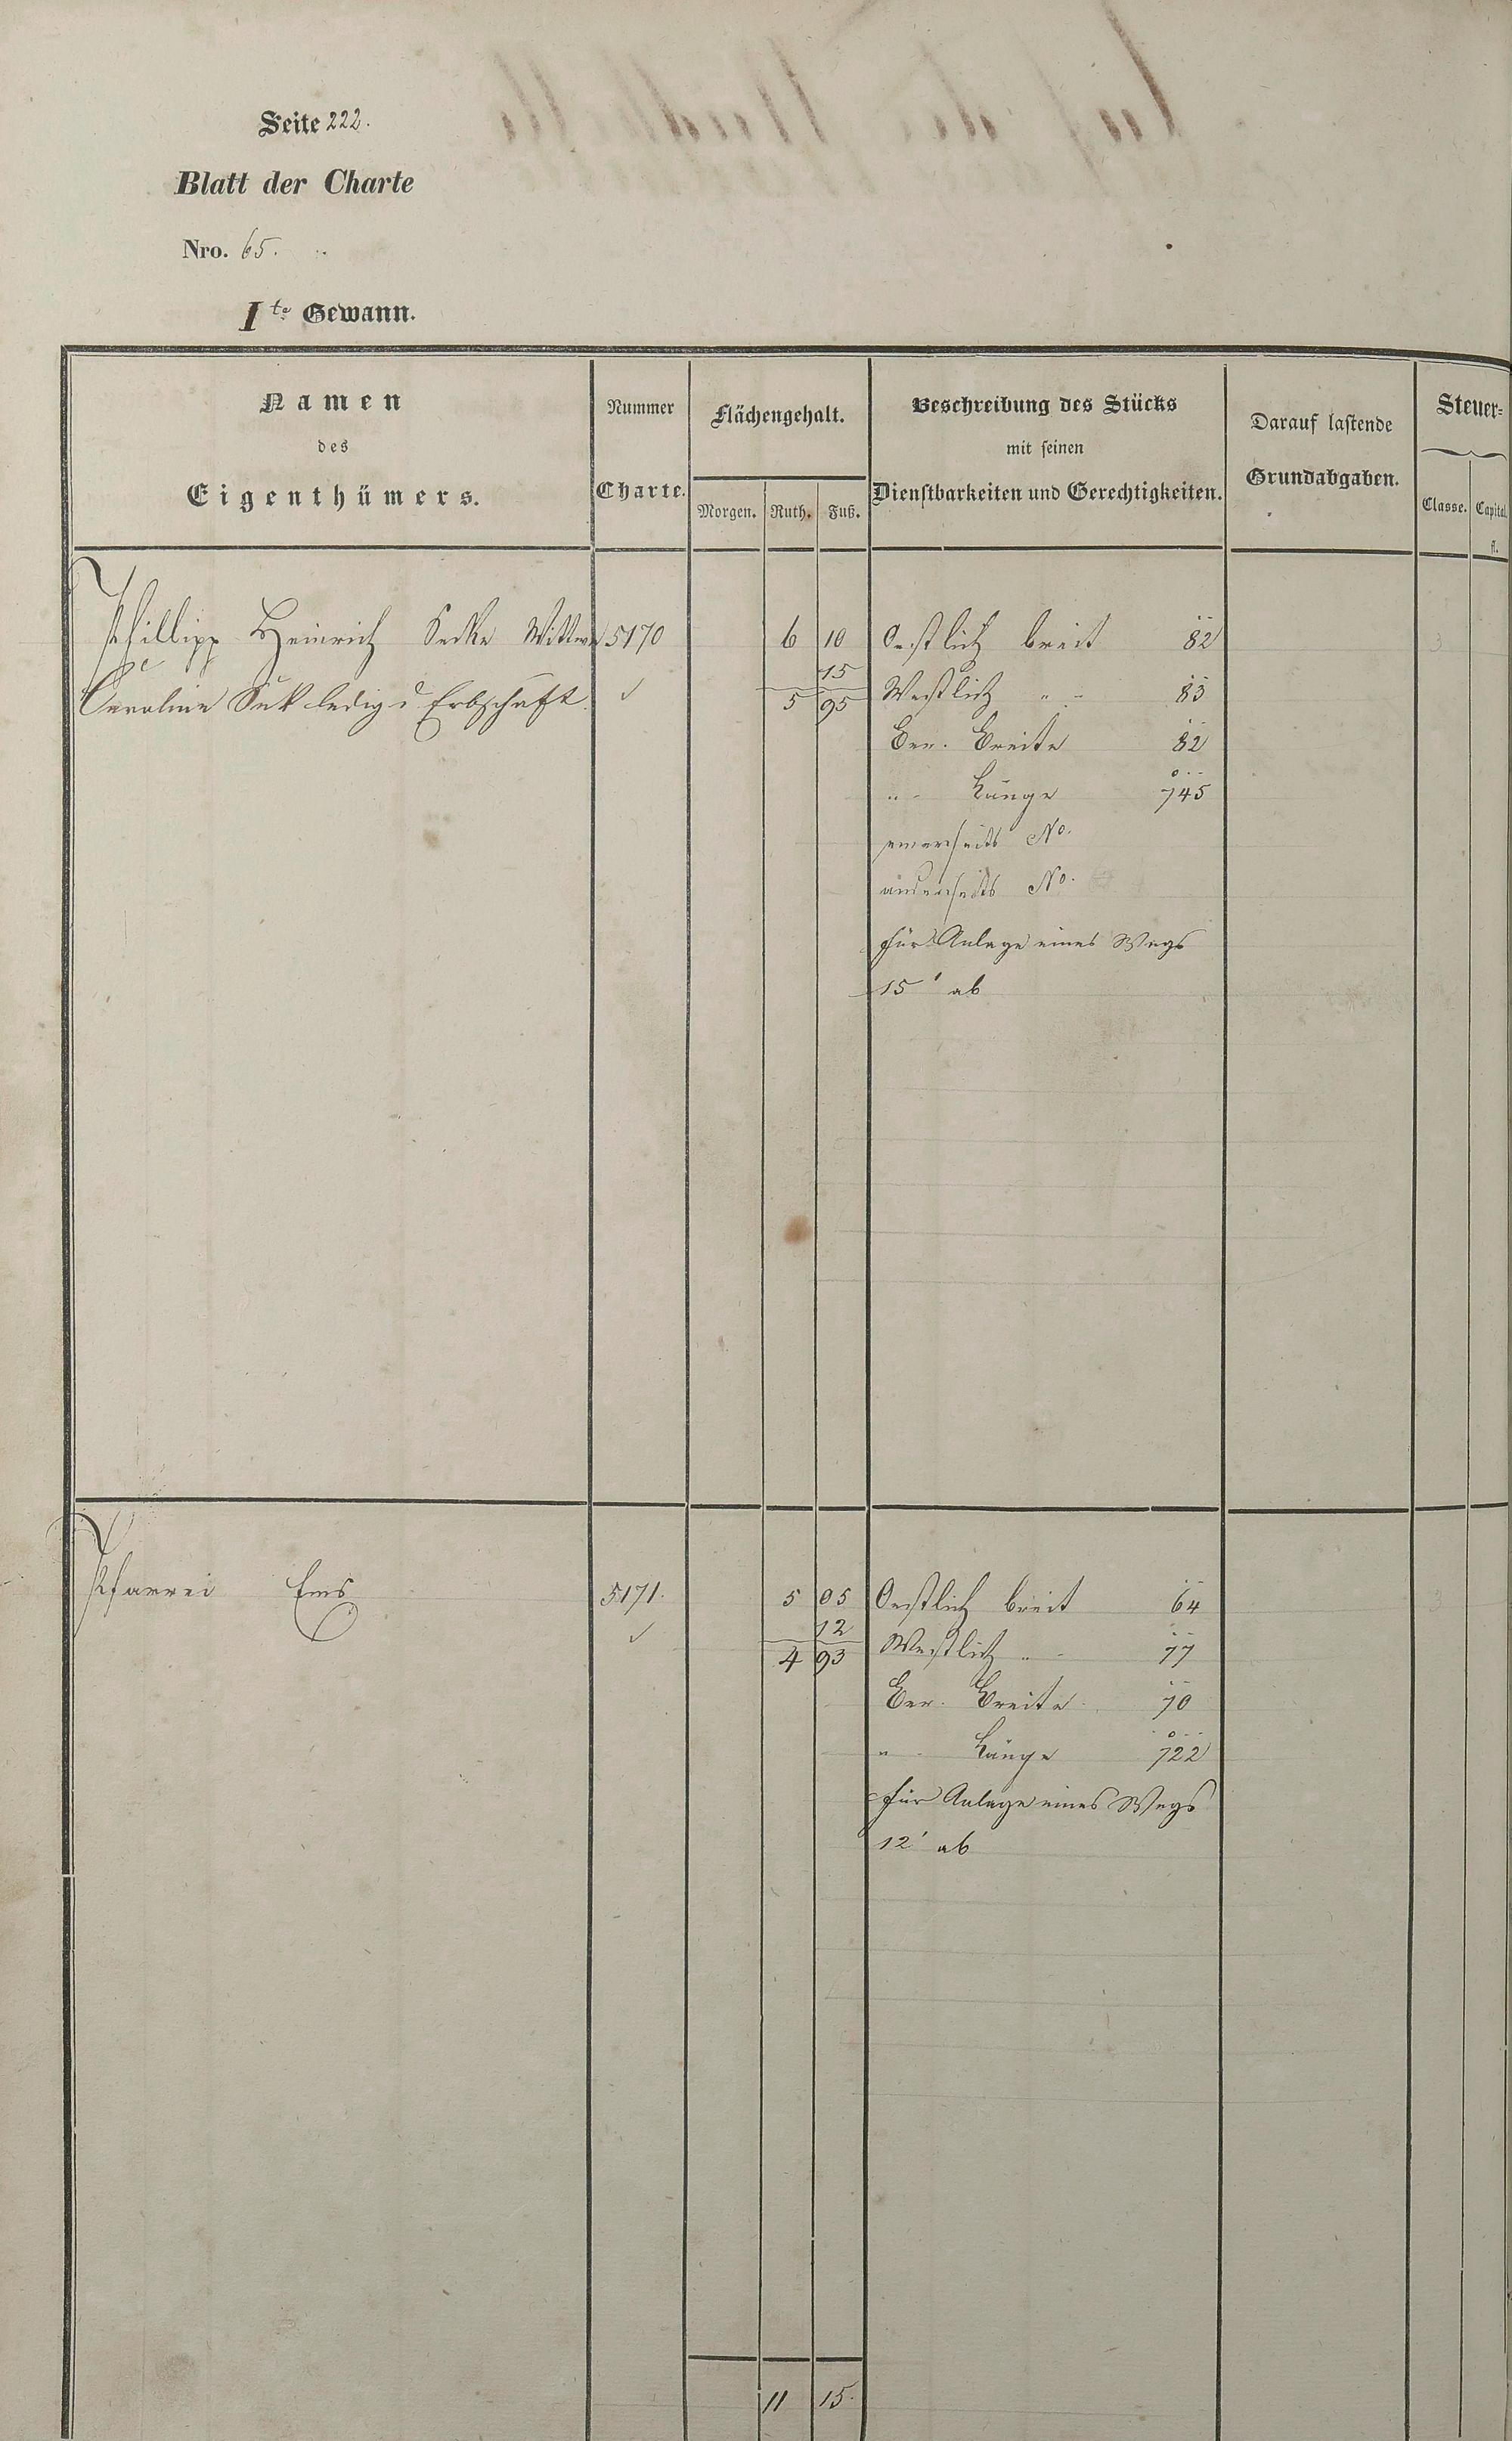 Seite 222.
Blatt der Charte
Nro. 65.
I te Gewann.
Namen
des
Eigenthümers.
Nummer
Charte.
Flächengehalt.
Morgen. Ruth. Fuß.
Beschreibung des Stücks
mit seinen
Dienstbarkeiten und Gerechtigkeiten.
Darauf lastende
Grundabgaben.
Steuer-
Classe. Capital.
fl.
Phillipp Heinrich Wittwe 5170 6 10 Oestlich breit 82
15
Caroline ledig Erbschaft 5 95 Westlich " 83
Ber. Breite 82
" Länge 745
einerseits No.
anderseits No.
für Anlage eines Wegs
15' ab
Pfarrei Ems 5171. 5 05 Oestlich breit 64
12
4 93 Westlich " 77
Ber. Breite 70
" Länge 722
für Anlage eines Wegs
12' ab
11 15.